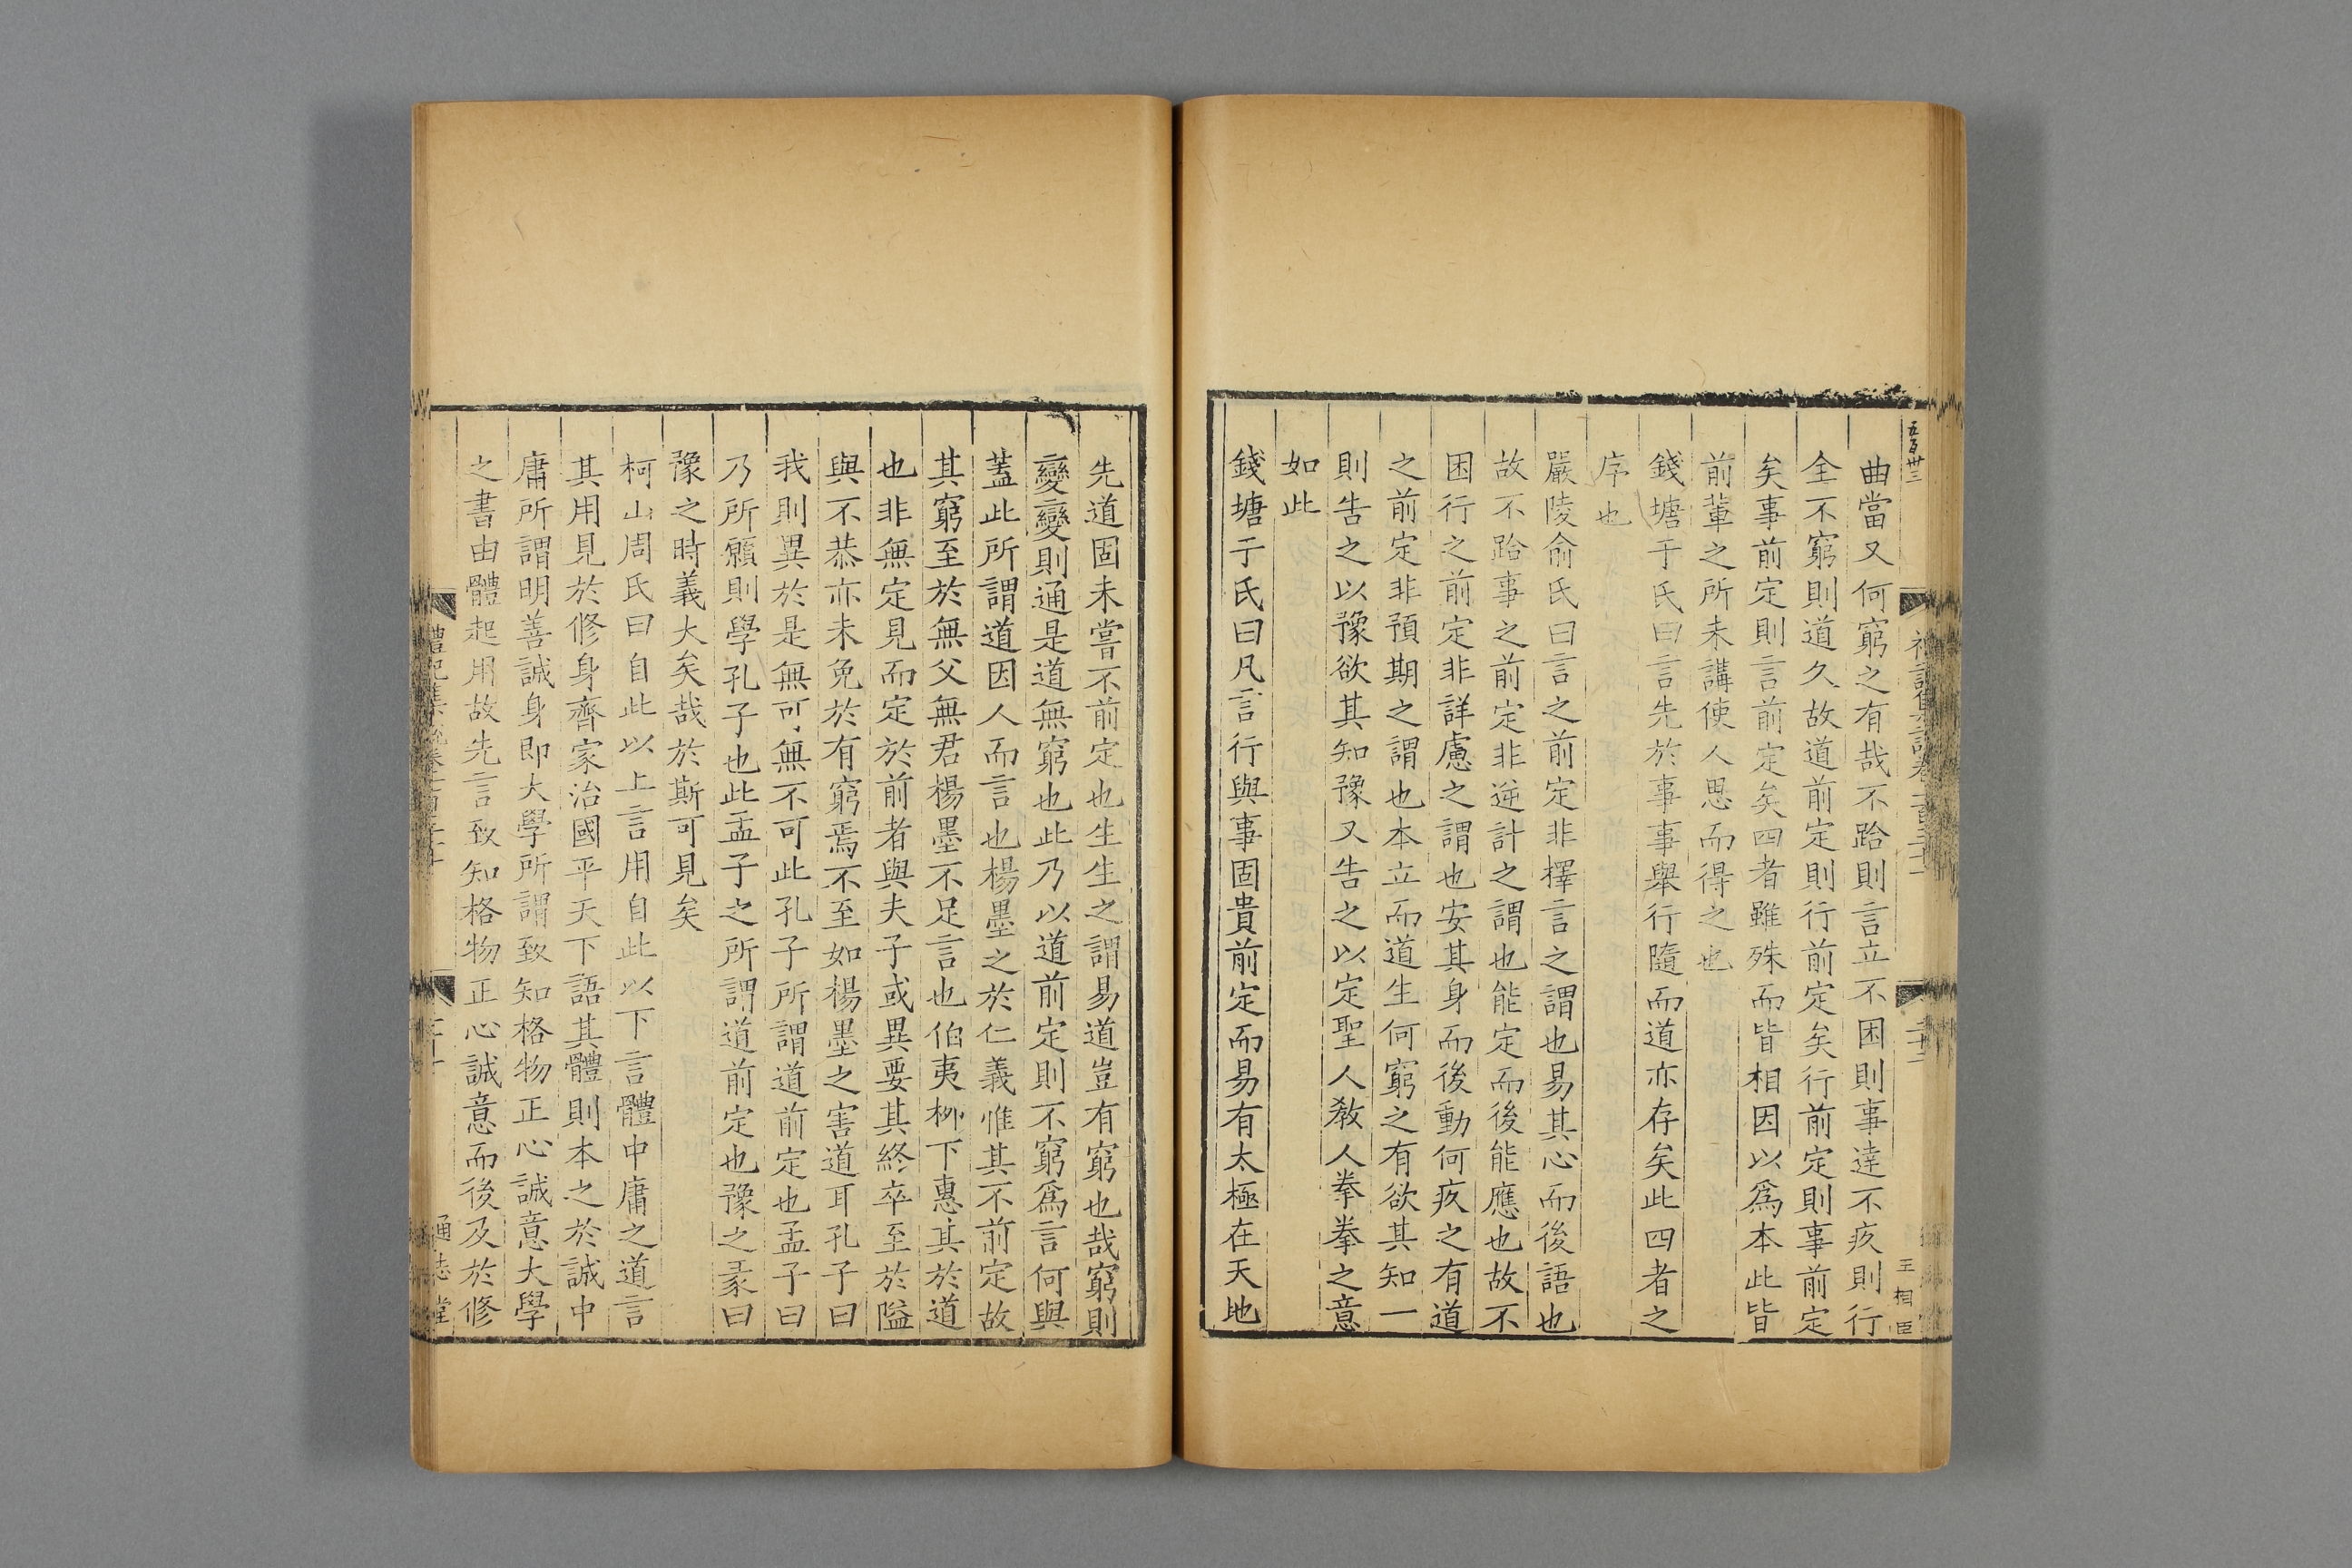 五百卅三
曲當又何窮之有哉不跲則言立不困則事達不疚則行
全不窮則道久故道前定則行前定矣行前定則事前定
矣事前定則言前定矣四者雖殊而皆相因以爲本此皆
前輩之所未講使人思而得之也
錢塘于氏曰言先於事事舉行隨而道亦存矣此四者之
序也
嚴陵俞氏曰言之前定非擇言之謂也易其心而後語也
故不跲事之前定非逆計之謂也能定而後能應也故不
困行之前定非詳慮之謂也安其身而後動何疚之有道
之前定非預期之謂也本立而道生何窮之有欲其知一
則告之以豫欲其知豫又告之以定聖人敎人拳拳之意
如此
錢塘于氏曰凡言行與事固貴前定而易有太極在天地
王相臣
先道固未嘗不前定也生生之謂易道豈有窮也哉窮則
變變則通是道無窮也此乃以道前定則不窮爲言何與
蓋此所謂道因人而言也楊墨之於仁義惟其不前定故
其窮至於無父無君楊墨不足言也伯夷柳下惠其於道
也非無定見而定於前者與夫子或異要其終卒至於隘
與不恭亦未免於有窮焉不至如楊墨之害道耳孔子曰
我則異於是無可無不可此孔子所謂道前定也孟子曰
乃所願則學孔子也此孟子之所謂道前定也豫之彖曰
豫之時義大矣哉於斯可見矣
柯山周氏曰自此以上言用自此以下言體中庸之道言
其用見於修身齊家治國平天下語其體則本之於誠中
庸所謂明善誠身即大學所謂致知格物正心誠意大學
之書由體起用故先言致知格物正心誠意而後及於修
通志堂